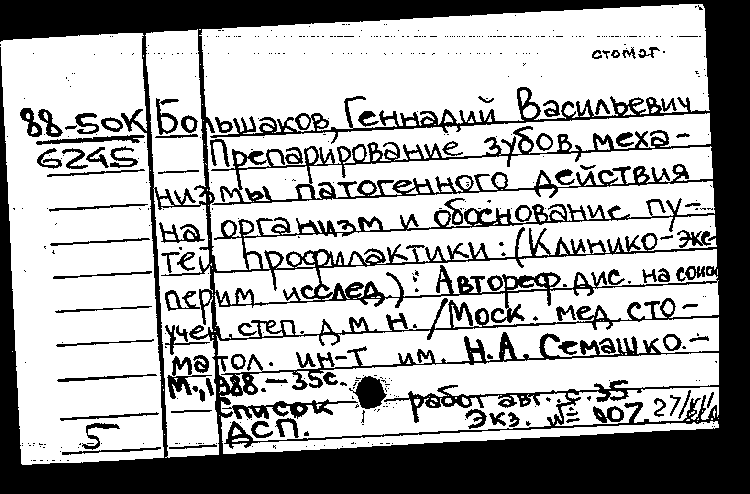 стомат.
88-50К Большаков, Геннадий Васильевич
6245 Препарирование зубов, меха-
низмы патогенного действия
на организм и обоснование пу-
тей профилактики: (Клинико-экс-
перим. исслед.): Автореф. дис. на соиск.
учен. степ. д.м.н. /Моск. мед. сто-
матол. ин-т им. Н.А. Семашко.-
М., 1988.-35с.
Список работ авт.: с.35.
5 ДСП. Экз. № 007.